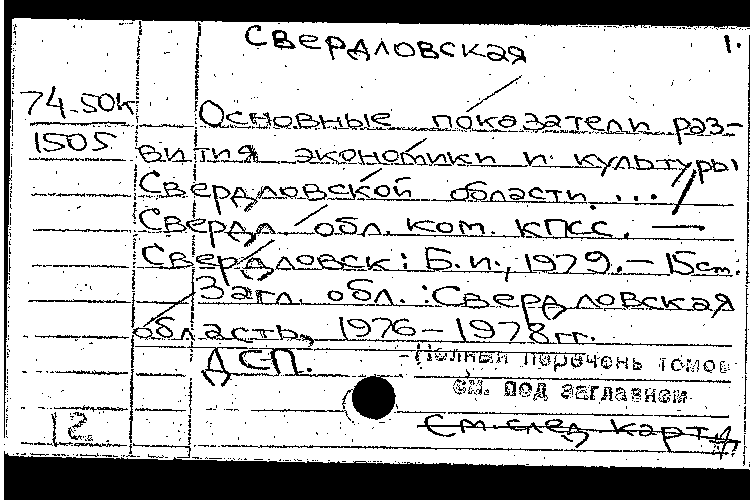 Свердловская 1.
74-50к Основные показатели раз-
1505 вития экономики и культуры
Свердловской области. ... /
Свердл. обл. ком. КПСС. —
Свердловск: Б.и., 1979. – 15 cm.
Загл. обл.: Свердловская
область, 1976–1978 гг.
ДСП. -Полный перечень томов
см. под заглавием
12 См. след. карт.